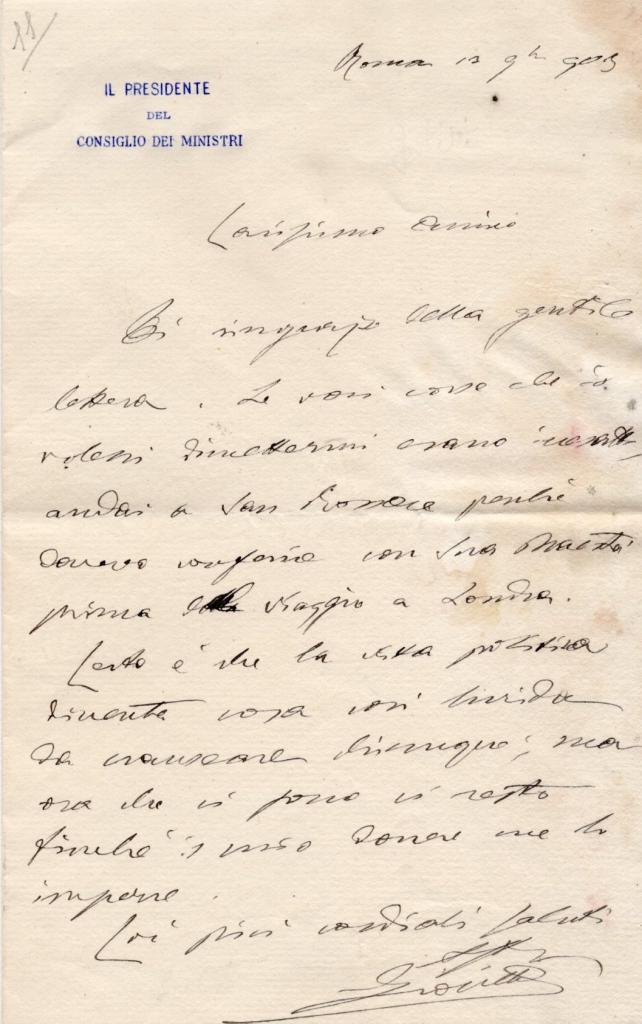 11
Roma 13 9bre 903
IL PRESIDENTE
DEL
CONSIGLIO DEI MINISTRI
Carissimo amico
Ti ringrazio della gentile
lettera. Le voci corse che io
volessi dimettermi erano inesatte
andai a San Rossore perché
dovevo conferire con Sua Maestà
prima del viaggio a Londra.
Certo è che la vita politica
diventa cosa così
da nauseare chiunque; ma
ora che ci sono ci resto
finché il mio dovere me lo
impone.
Coi più cordiali saluti
Giolitti